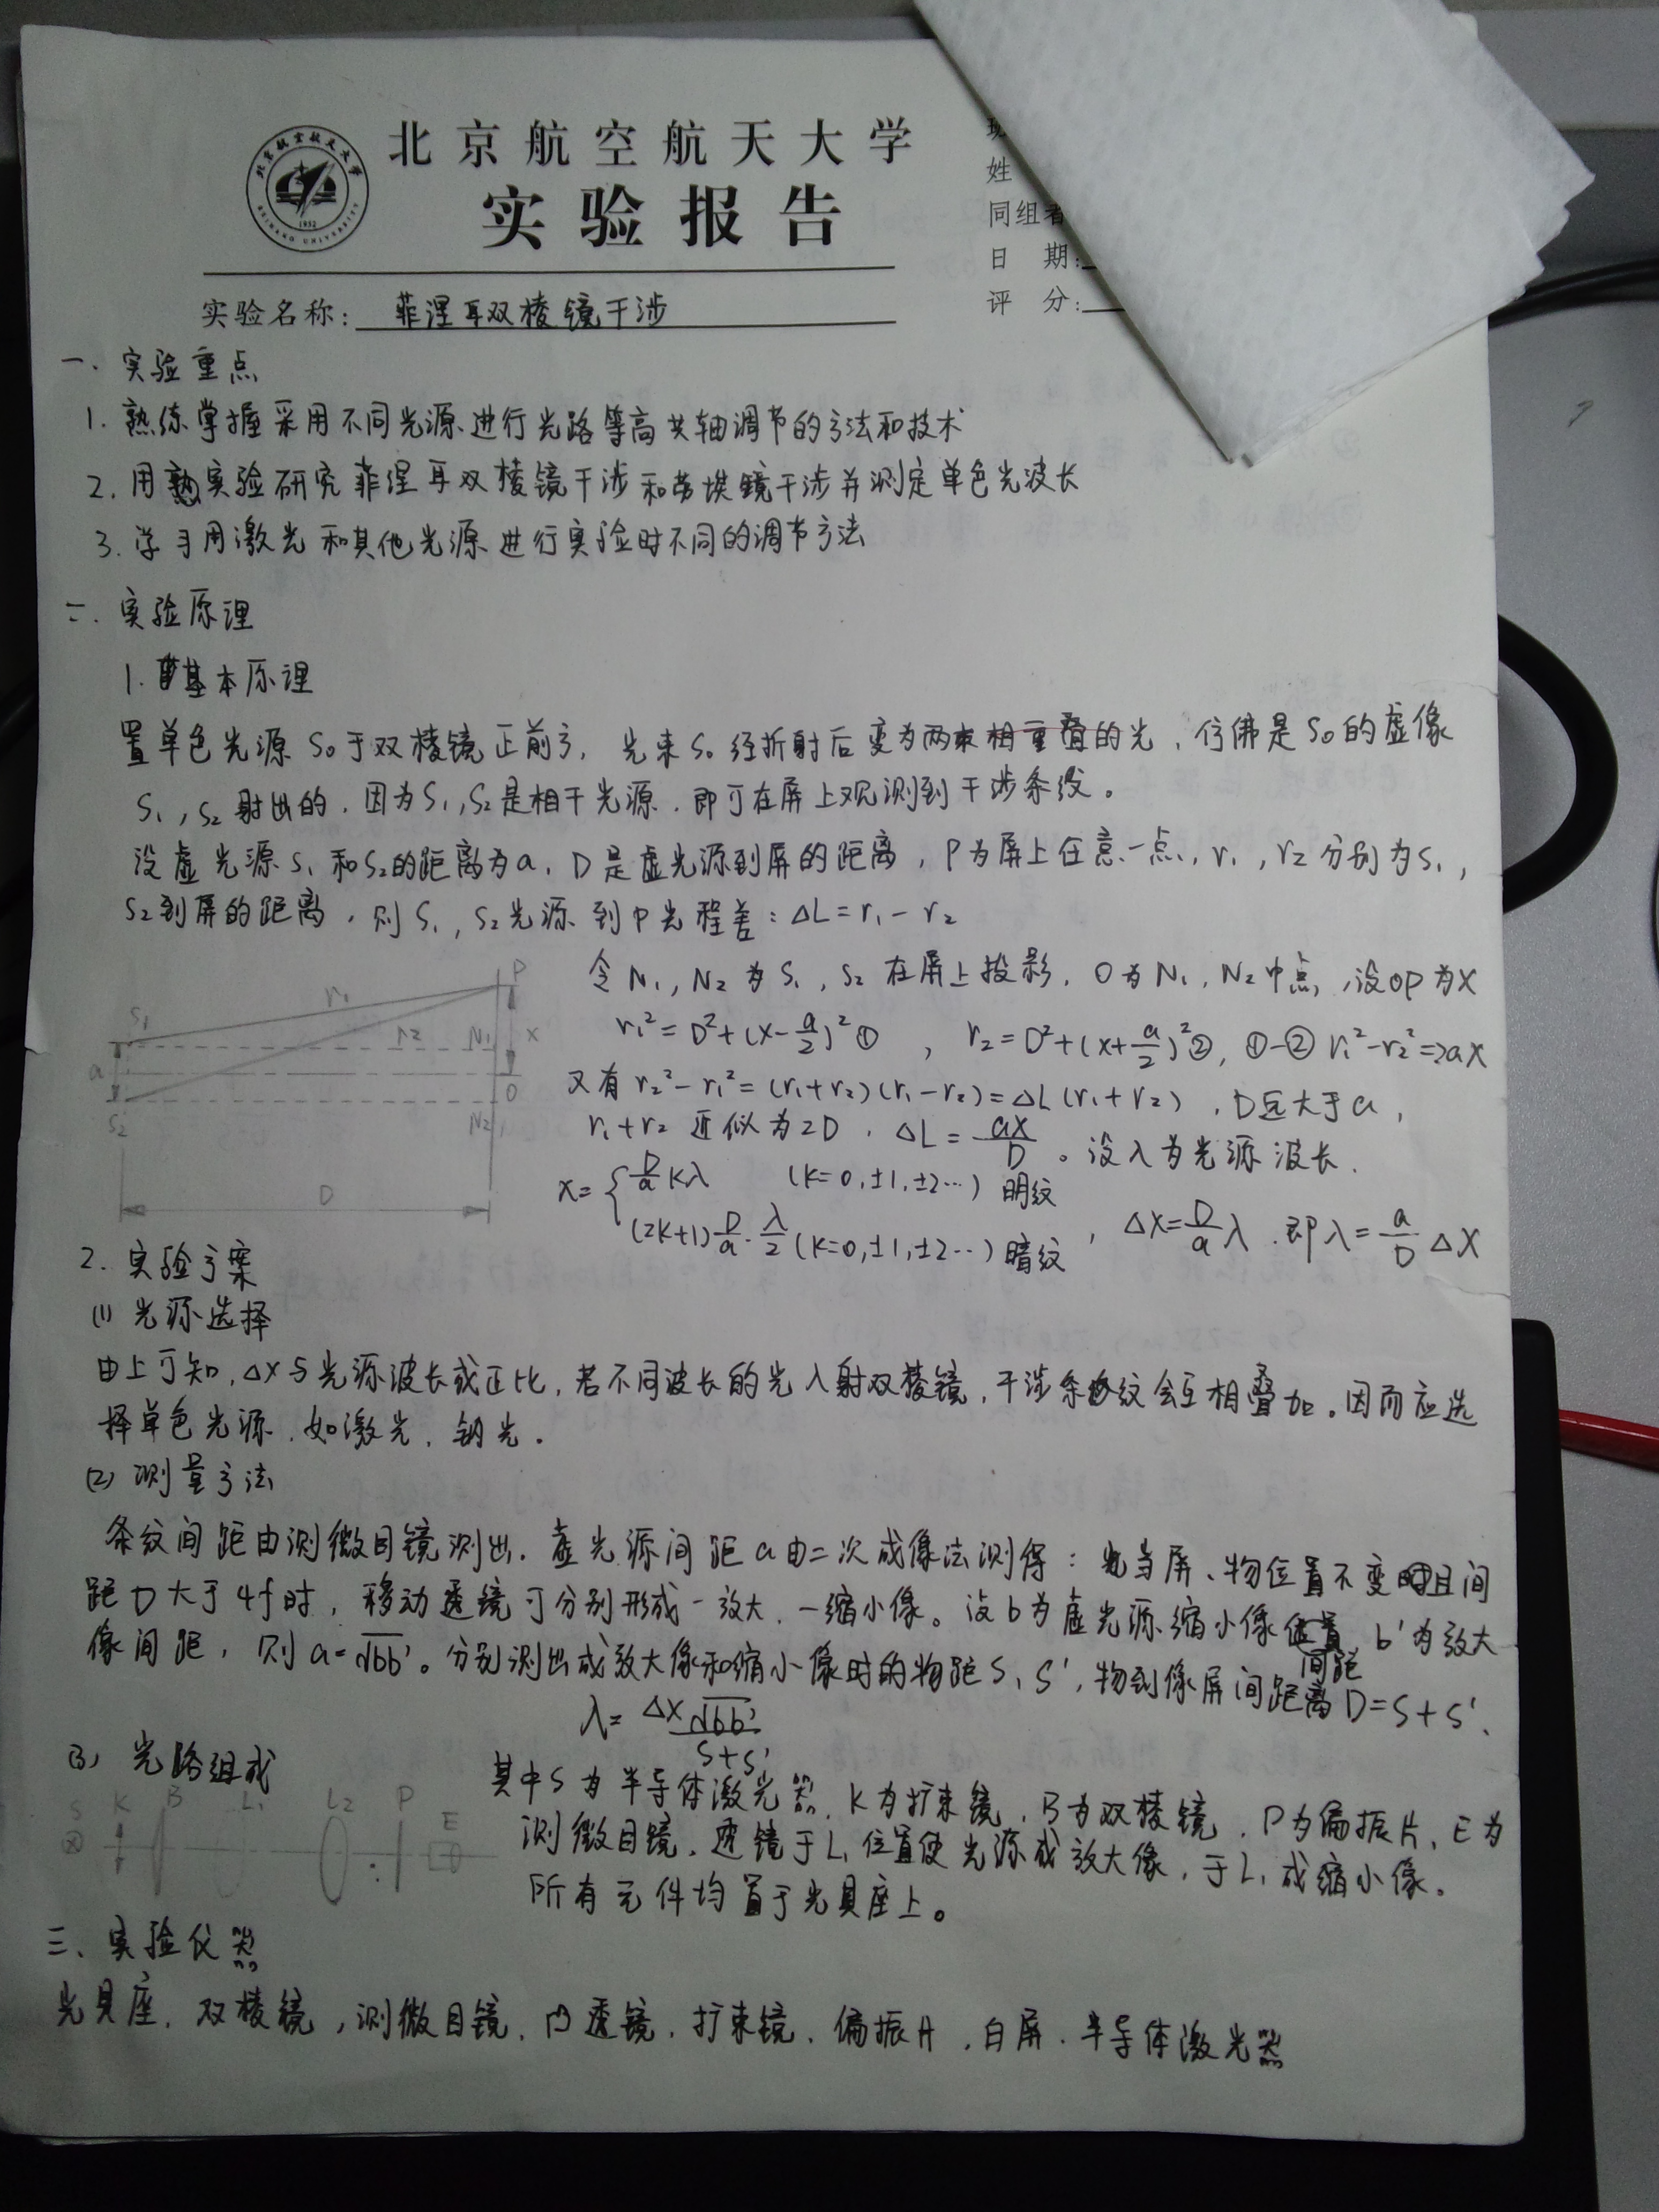 北京航空航天大学
实验报告
姓
同组者
日 期:
评 分:
实验名称: 菲涅耳双棱镜干涉
一. 实验重点
1. 熟练掌握采用不同光源进行光路等高共轴调节的方法和技术
2. 用实验研究菲涅耳双棱镜干涉和劳埃镜干涉并测定单色光波长
3. 学习用激光和其他光源进行实验时不同的调节方法
二. 实验原理
1. 基本原理
置单色光源S₀于双棱镜正前方, 光束S₀经折射后变为两束相重叠的光, 仿佛是S₀的虚像
S₁, S₂射出的, 因为S₁, S₂是相干光源, 即可在屏上观测到干涉条纹。
设虚光源S₁和S₂的距离为a, D是虚光源到屏的距离, P为屏上任意一点, r₁, r₂分别为S₁,
S₂到屏的距离, 则S₁, S₂光源到P光程差: ΔL=r₁-r₂
令N₁, N₂为S₁, S₂在屏上投影, O为N₁, N₂中点, 设OP为x
r₁²=D²+(x-a/2)²①, r₂=D²+(x+a/2)²②, ①-② r₁²-r₂²=2ax
又有r₂²-r₁²=(r₁+r₂)(r₁-r₂)=ΔL(r₁+r₂), D远大于a,
r₁+r₂近似为2D, ΔL=ax/D。设λ为光源波长.
x={ D/a kλ (k=0,±1,±2…) 明纹
(2k+1)D/a·λ/2 (k=0,±1,±2…) 暗纹, Δx=D/a λ. 即λ=a/D Δx
S₁ r₁ P
a r₂ N₁ x
S₂ O
N₂
D
2. 实验方案
(1) 光源选择
由上可知, Δx与光源波长成正比, 若不同波长的光入射双棱镜, 干涉条纹会互相叠加。因而应选
择单色光源, 如激光, 钠光.
(2) 测量方法
条纹间距由测微目镜测出. 虚光源间距a由二次成像法测得: 当屏、物位置不变且间
距D大于4f时, 移动透镜可分别形成一放大, 一缩小像。设b为虚光源缩小像间距, b'为放大
像间距, 则a=√bb'。分别测出成放大像和缩小像时的物距S, S', 物到像屏间距离D=S+S'.
λ=Δx√bb'/S+S'
(3) 光路组成
S K B L₁ L₂ P E
其中S为半导体激光器, K为扩束镜, B为双棱镜, P为偏振片, E为
测微目镜. 透镜于L₁位置使光源成放大像, 于L₁成缩小像.
所有元件均置于光具座上。
三、实验仪器
光具座, 双棱镜, 测微目镜, 凸透镜, 扩束镜, 偏振片, 白屏, 半导体激光器